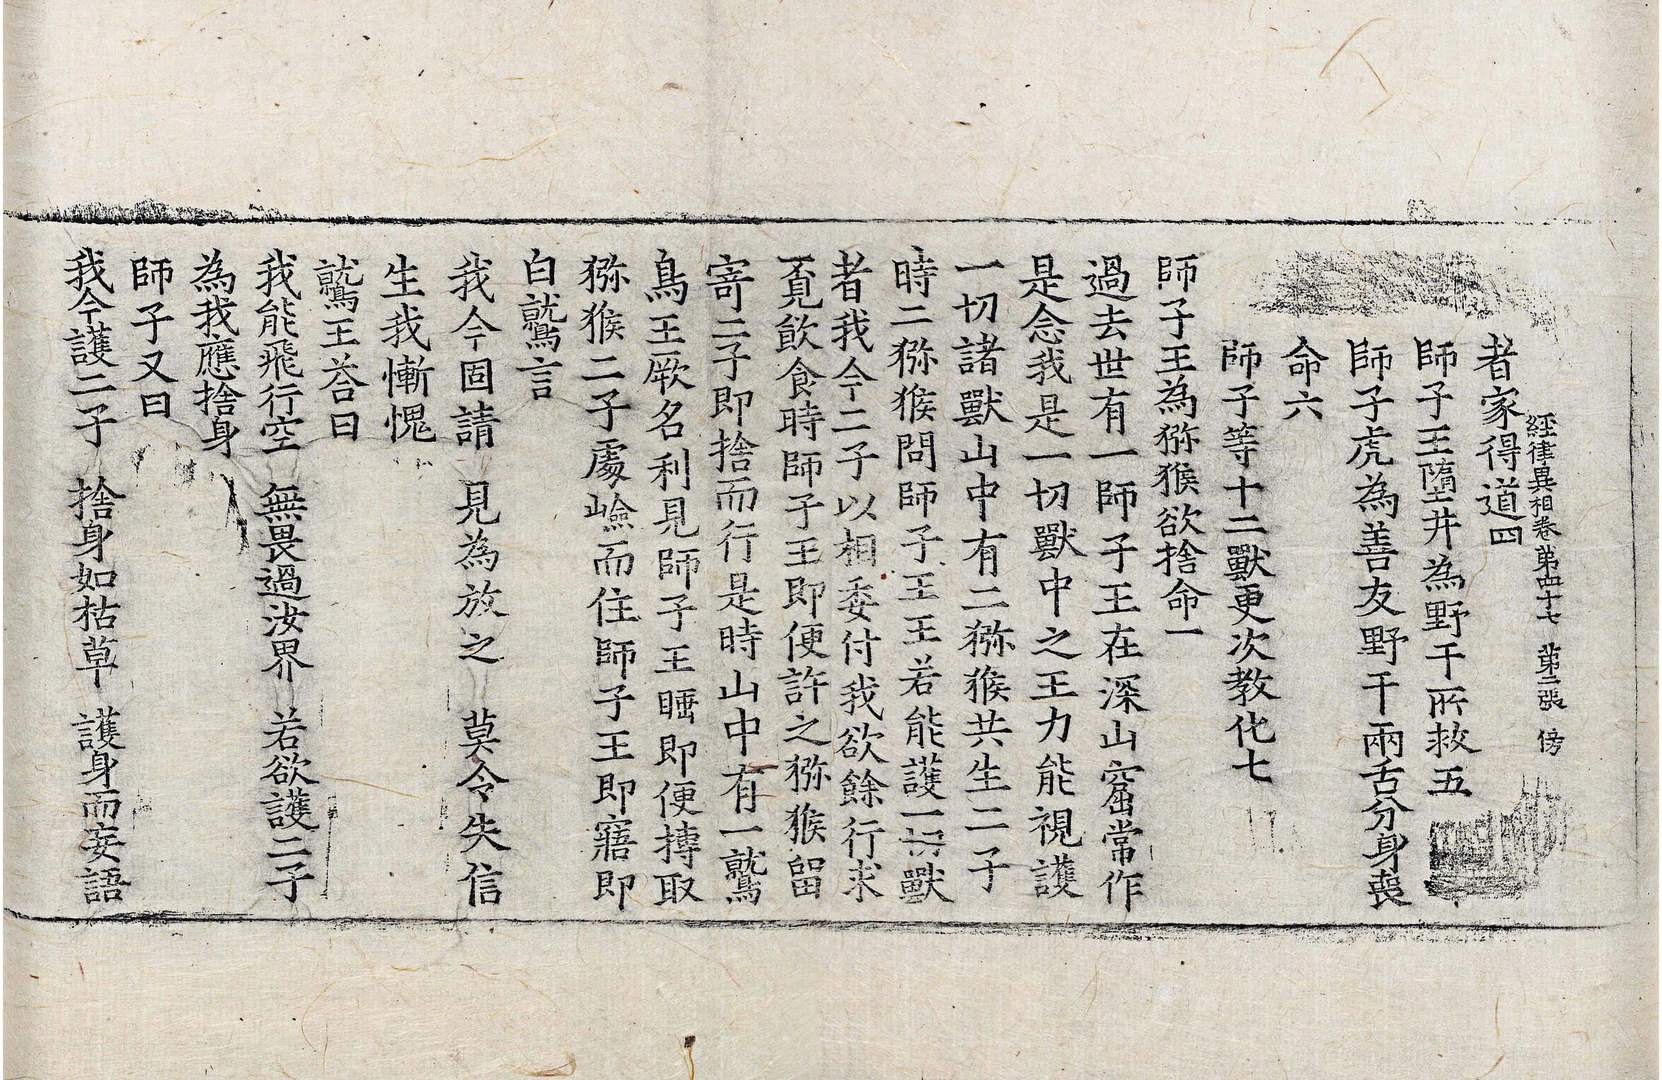 經律異相卷第四十七 第二張 傍
者家得道四
師子王墮井為野干所救五
師子虎為善友野干兩舌分身喪
命六
師子等十二獸更次教化七
師子王為猕猴欲捨命一
過去世有一師子王在深山窟常作
是念我是一切獸中之王力能視護
一切諸獸山中有二猕猴共生二子
時二猕猴問師子王王若能護一切獸
者我今二子以相委付我欲餘行求
覔飲食時師子王即便許之猕猴留
寄二子即捨而行是時山中有一鷲
鳥王厥名利見師子王睡即便摶取
猕猴二子處嶮而住師子王即寤即
白鷲言
我今固請 見為放之 莫令失信
生我慚愧
鷲王荅曰
我能飛行空 無畏過汝界 若欲護二子
為我應捨身
師子又曰
我今護二子 捨身如枯草 護身而妄語